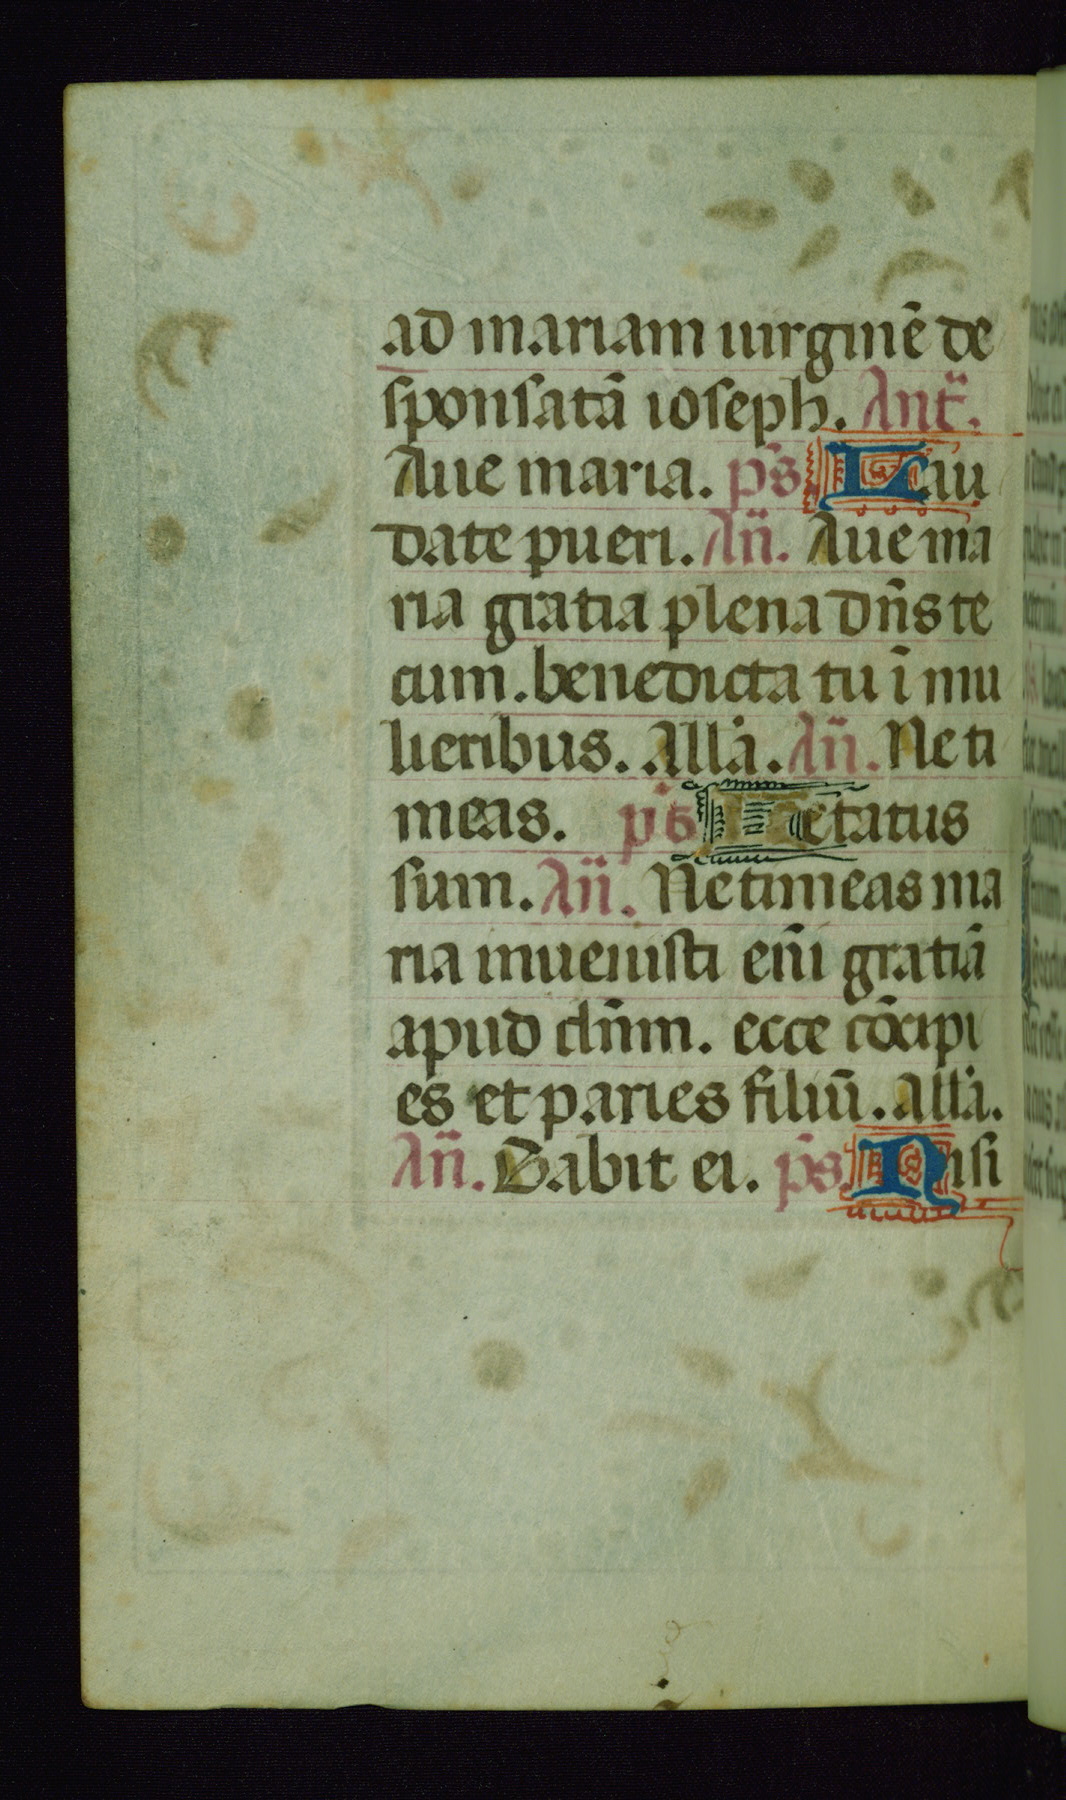 ad mariam uirginē de
sponsatā ioseph. Ant̄.
Aue maria. ps̄. Lau
date pueri. Añ. Aue ma
ria gratia plena dn̄s te
cum. benedicta tu ī mu
lieribus. All̄a. Añ. Ne ti
meas. ps̄ Letatus
sum. Añ. Ne timeas ma
ria inuenisti eīm gratiā
apud dn̄m. ecce cōcipi
es et paries filiū. all̄a.
Añ. Dabit ei. ps̄. Nisi